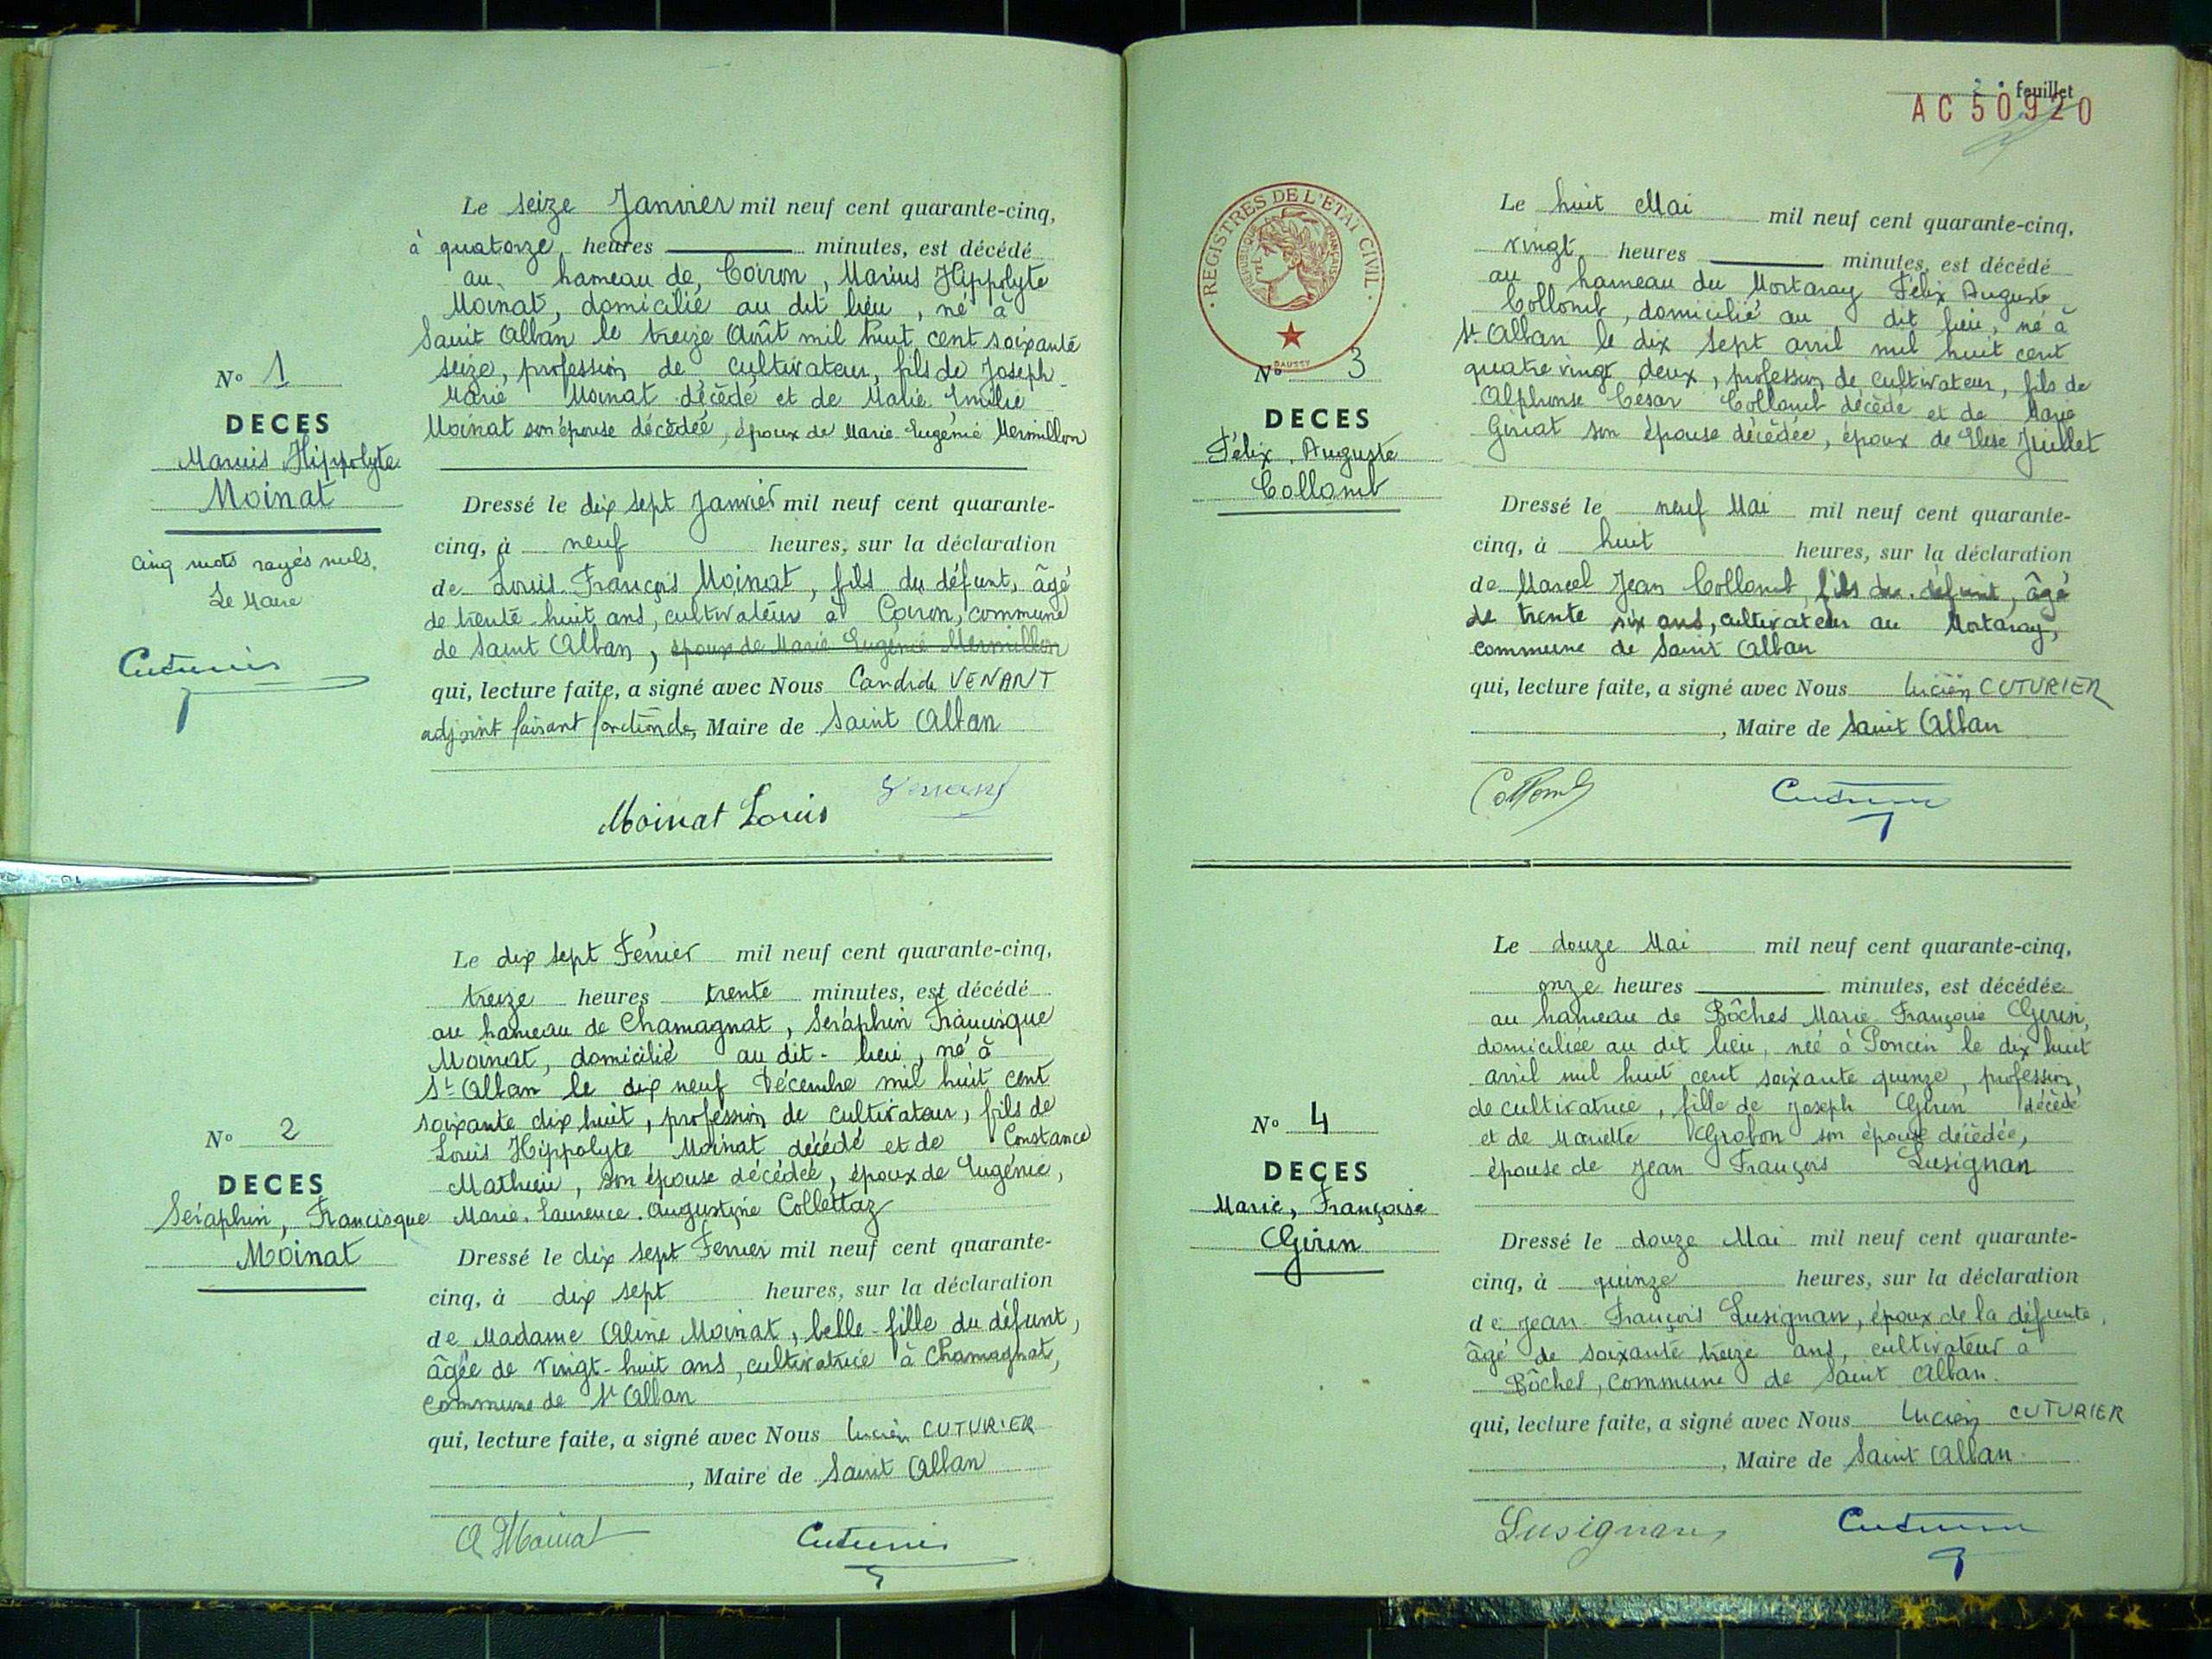 Le seize Janvier mil neuf cent quarante-cinq,
à quatorze heures minutes, est décédé
au hameau de, Coiron, Marius Hippolyte
Moinat, domicilié au dit lieu, né à
Saint Alban le treize Août mil huit cent soixante
seize, profession de cultivateur, fils de Joseph
Marie Moinat décédé et de Marie Emilie
Moinat son épouse décédée, époux de Marie Eugénie Mermillon
N° 1
DECES
Marius Hippolyte
Moinat
cinq mots rayés nuls.
Le Maire
Cuturier
Dressé le dix sept Janvier mil neuf cent quarante-
cinq, à neuf heures, sur la déclaration
de Louis François Moinat, fils du défunt, âgé
de trente-huit ans, cultivateur à Coiron, commune
de Saint Alban, époux de Marie Eugénie Mermillon
qui, lecture faite, a signé avec Nous Candide VENANT
adjoint faisant fonction de, Maire de Saint Alban
Moinat Louis Venant
Le dix sept Février mil neuf cent quarante-cinq,
treize heures trente minutes, est décédé
au hameau de Chamagnat, Séraphin Francisque
Moinat, domicilié au dit-lieu, né à
St Alban le dix neuf Décembre mil huit cent
soixante dix huit, profession de cultivateur, fils de
Louis Hippolyte Moinat décédé et de Constance
Mathieu, son épouse décédée, époux de Eugénie,
Marie, Laurence, Augustine Collettaz
N° 2
DECES
Séraphin, Francisque
Moinat
Dressé le dix sept Février mil neuf cent quarante-
cinq, à dix sept heures, sur la déclaration
de Madame Aline Moinat, belle-fille du défunt,
âgée de vingt-huit ans, cultivatrice à Chamagnat,
commune de St Alban
qui, lecture faite, a signé avec Nous Lucien CUTURIER
, Maire de Saint Alban
A Moinat Cuturier
2e feuillet
AC 50920
REGISTRES DE L'ETAT CIVIL
REPUBLIQUE FRANÇAISE
DAUSSY
Le huit Mai mil neuf cent quarante-cinq,
vingt heures minutes, est décédé
au hameau du Mortaray Félix Auguste
Collomb, domicilié au dit lieu, né à
St Alban le dix sept avril mil huit cent
quatre vingt deux, profession de cultivateur, fils de
Alphonse César Collomb décédé et de Marie
Giriat son épouse décédée, époux de Elise Juillet
N° 3
DECES
Félix, Auguste
Collomb
Dressé le neuf Mai mil neuf cent quarante-
cinq, à huit heures, sur la déclaration
de Marcel Jean Collomb, fils du défunt, âgé
de trente six ans, cultivateur au Mortaray,
commune de Saint Alban
qui, lecture faite, a signé avec Nous Lucien CUTURIER
, Maire de Saint Alban
Collomb Cuturier
Le douze Mai mil neuf cent quarante-cinq,
onze heures minutes, est décédée
au hameau de Bôches Marie Françoise Girin,
domiciliée au dit lieu, née à Poncin le dix huit
avril mil huit cent soixante quinze, profession
de cultivatrice, fille de Joseph Girin décédé
et de Mariette Grobon son épouse décédée,
épouse de Jean François Lusignan
N° 4
DECES
Marie, Françoise
Girin
Dressé le douze Mai mil neuf cent quarante-
cinq, à quinze heures, sur la déclaration
de Jean François Lusignan, époux de la défunte,
âgé de soixante treize ans, cultivateur à
Bôches, commune de Saint Alban.
qui, lecture faite, a signé avec Nous Lucien CUTURIER
, Maire de Saint Alban
Lusignan Cuturier